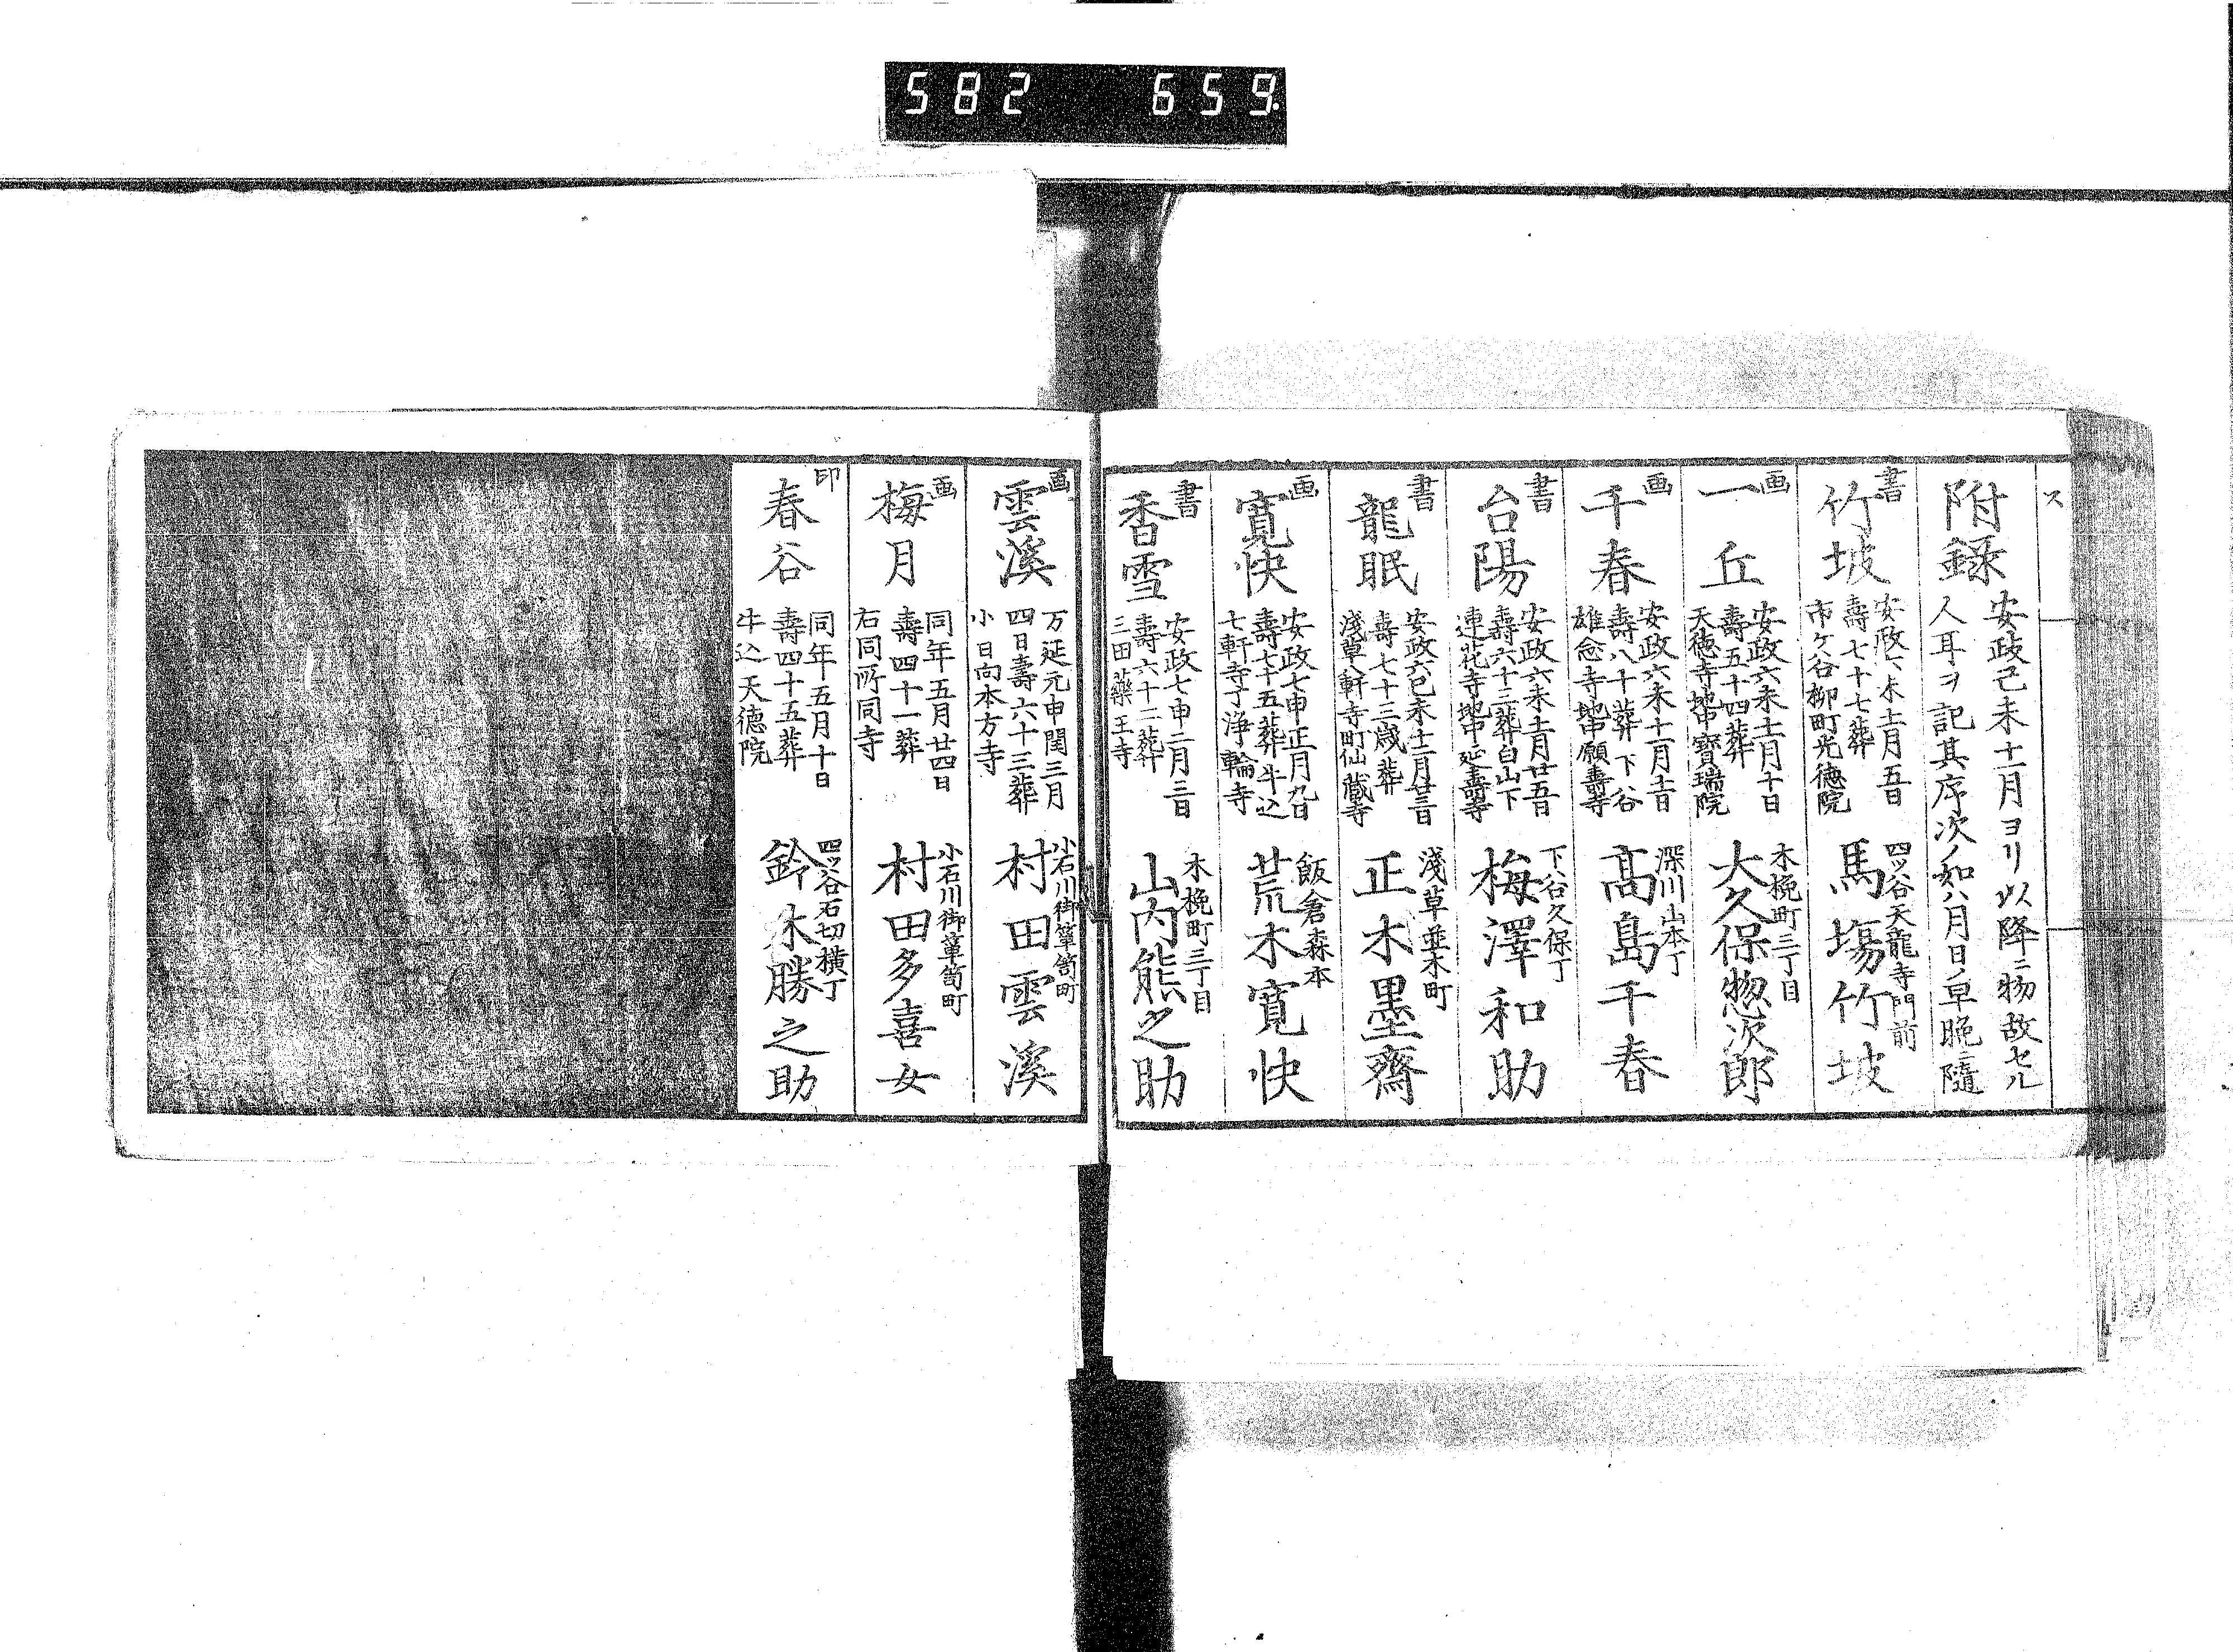 582 659.
ス
附録
安政己未十一月ヨリ以降ニ物故セル
人耳ヲ記其序次ノ如ハ月日ノ早晩ニ隨
書
竹坡
安政六未十一月五日
壽七十七葬
市ケ谷柳町光徳院
四ッ谷天龍寺門前
馬場竹坡
画
一丘
安政六未十一月十日
壽五十四葬
天徳寺地中寶瑞院
木挽町三丁目
大久保惣次郎
画
千春
安政六未十一月十二日
壽八十葬下谷
雄念寺地中願壽寺
深川山本丁
高島千春
書
台陽
安政六未十一月廿五日
壽六十三葬白山下
蓮花寺地中延壽寺
下谷久保丁
梅澤和助
書
龍眠
安政六己未十二月廿三日
壽七十三歳葬
淺草八軒寺町仙藏寺
淺草並木町
正木墨齋
画
寛快
安政七申正月九日
壽七十五葬牛込
七軒寺丁浄輪寺
飯倉森本
荒木寛快
書
香雪
安政七申二月三日
壽六十二葬
三田藥王寺
木挽町三丁目
山内熊之助
画
雲溪
万延元申閏三月
四日壽六十三葬
小日向本方寺
小石川御箪笥町
村田雲溪
画
梅月
同年五月廿四日
壽四十一葬
右同所同寺
小石川御箪笥町
村田多喜女
印
春谷
同年五月十日
壽四十五葬
牛込天德院
四ッ谷石切横丁
鈴木勝之助